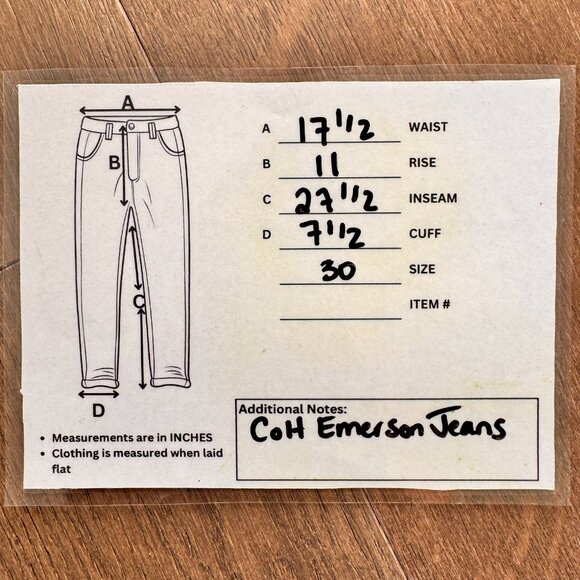 A
B
C
D
A 17 1/2 WAIST
B 11 RISE
C 27 1/2 INSEAM
D 7 1/2 CUFF
30 SIZE
ITEM #
• Measurements are in INCHES
• Clothing is measured when laid
flat
Additional Notes:
CoH Emerson Jeans